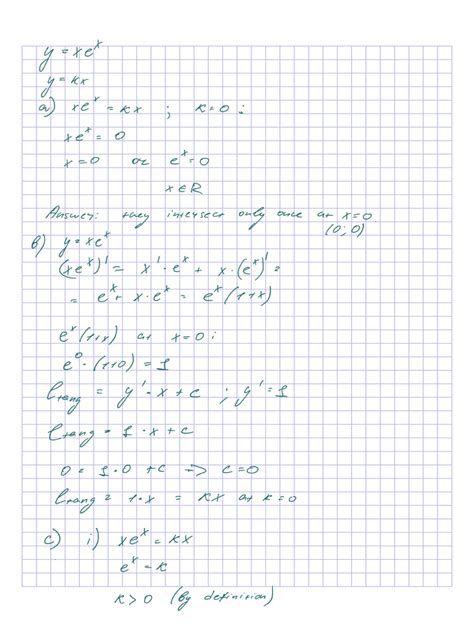 y = xeˣ
y = kx
a) xeˣ = kx ; k=0 :
xeˣ = 0
x=0 or eˣ=0
x∈R
Answer: they intersect only once at x=0
(0; 0)
b) y = xeˣ
(xeˣ)' = x'·eˣ + x·(eˣ)' =
= eˣ + x·eˣ = eˣ(1+x)
eˣ(1+x) at x=0 :
e⁰·(1+0) = 1
l tang = y'·x + c ; y' = 1
l tang = 1·x + c
0 = 1·0 + c -> c=0
l tang = 1·x = kx at k=0
c) i) xeˣ = kx
eˣ = k
k>0 (by definition)